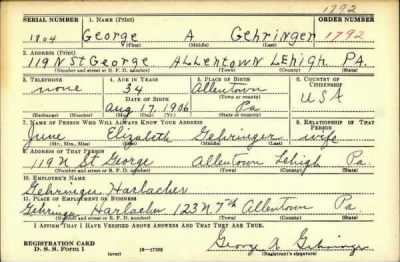 1792
SERIAL NUMBER 1. NAME (Print) ORDER NUMBER
1804 George A Gehringer 1792
(First) (Middle) (Last)
2. ADDRESS (Print)
119 N St George ALLentown Lehigh PA.
(Number and street or R. F. D. number) (Town) (County) (State)
3. TELEPHONE 4. AGE IN YEARS 5. PLACE OF BIRTH 6. COUNTRY OF CITIZENSHIP
none 34 Allentown
DATE OF BIRTH (Town or county) USA
Aug 17, 1906 Pa
(Exchange) (Number) (Mo.) (Day) (Yr.) (State or country)
7. NAME OF PERSON WHO WILL ALWAYS KNOW YOUR ADDRESS 8. RELATIONSHIP OF THAT PERSON
June Elizabeth Gehringer wife
(Mr., Mrs., Miss) (First) (Middle) (Last)
9. ADDRESS OF THAT PERSON
119 N St George Allentown Lehigh Pa
(Number and street or R. F. D. number) (Town) (County) (State)
10. EMPLOYER'S NAME
Gehringer Harbacher
11. PLACE OF EMPLOYMENT OR BUSINESS
Gehringer Harbacher 123 N 7th Allentown Pa
(Number and street or R. F. D. number) (Town) (County) (State)
I AFFIRM THAT I HAVE VERIFIED ABOVE ANSWERS AND THAT THEY ARE TRUE.
George A Gehringer
REGISTRATION CARD
D. S. S. Form 1 (over) 16—17105 (Registrant's signature)